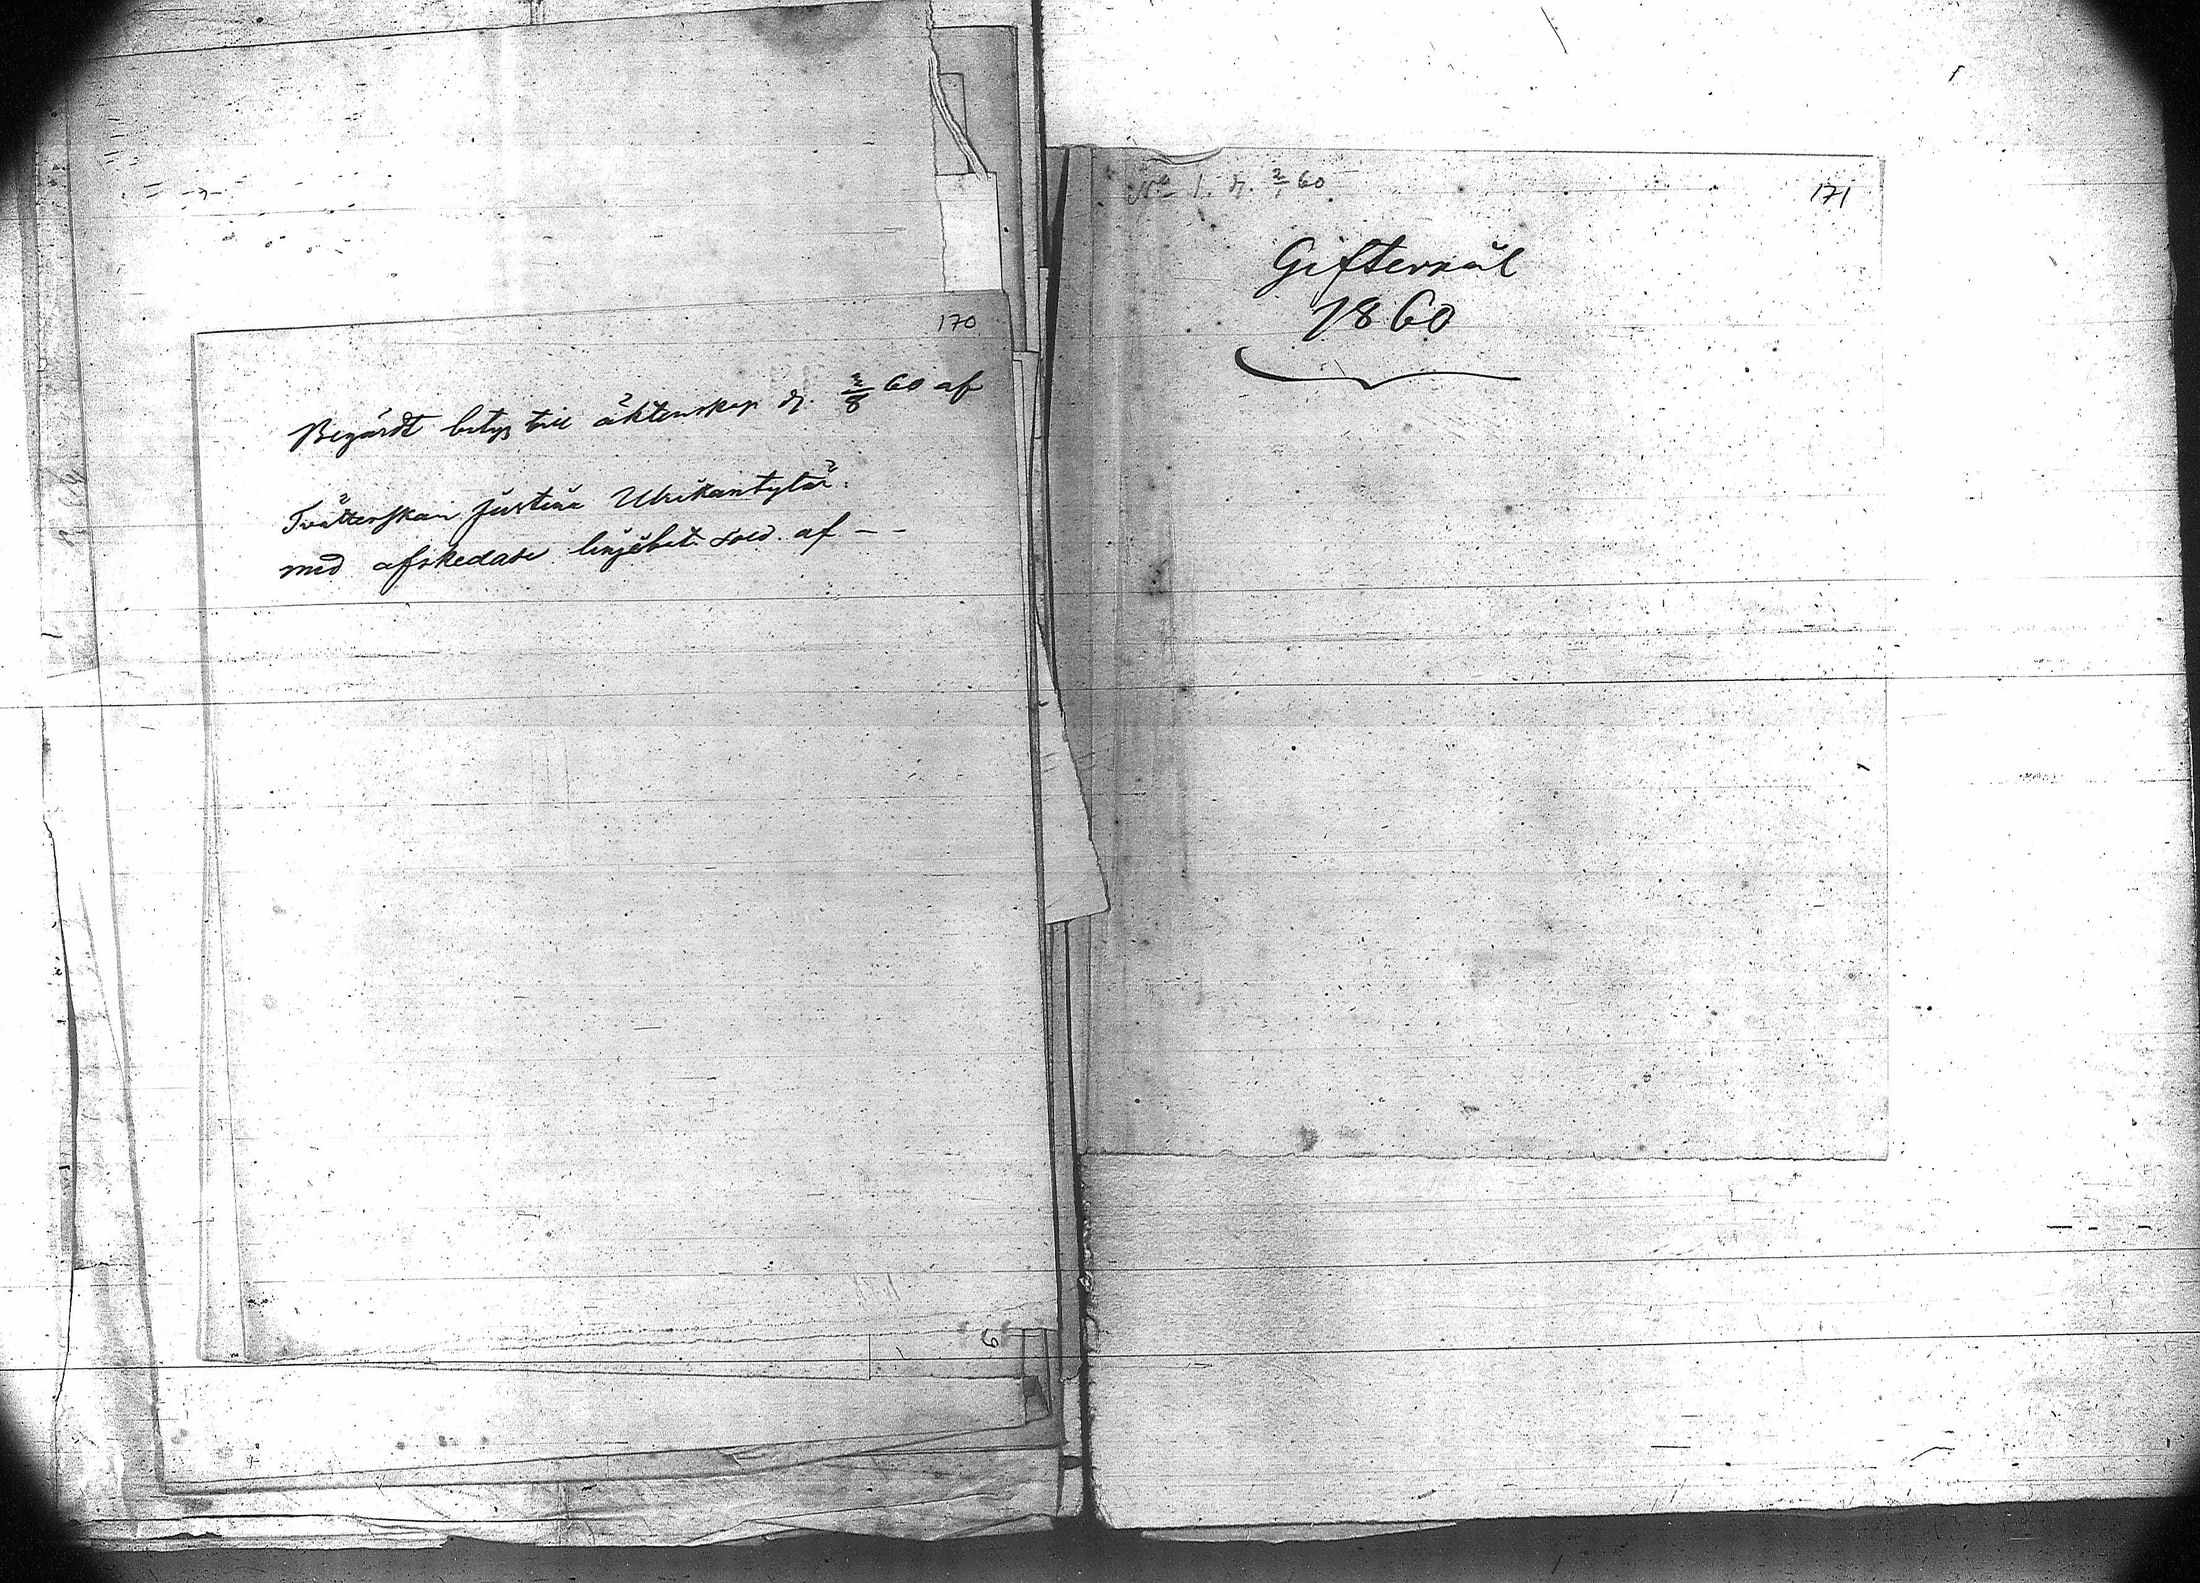 170
Begärdt betyg till äktenskap d. 2/8 60 af
Tvätterskan Justina Ulrikantytär
med afskedade linjebet. Sold. af — —
6
171
No 1. d. 2/1 60
Giftermål
1860